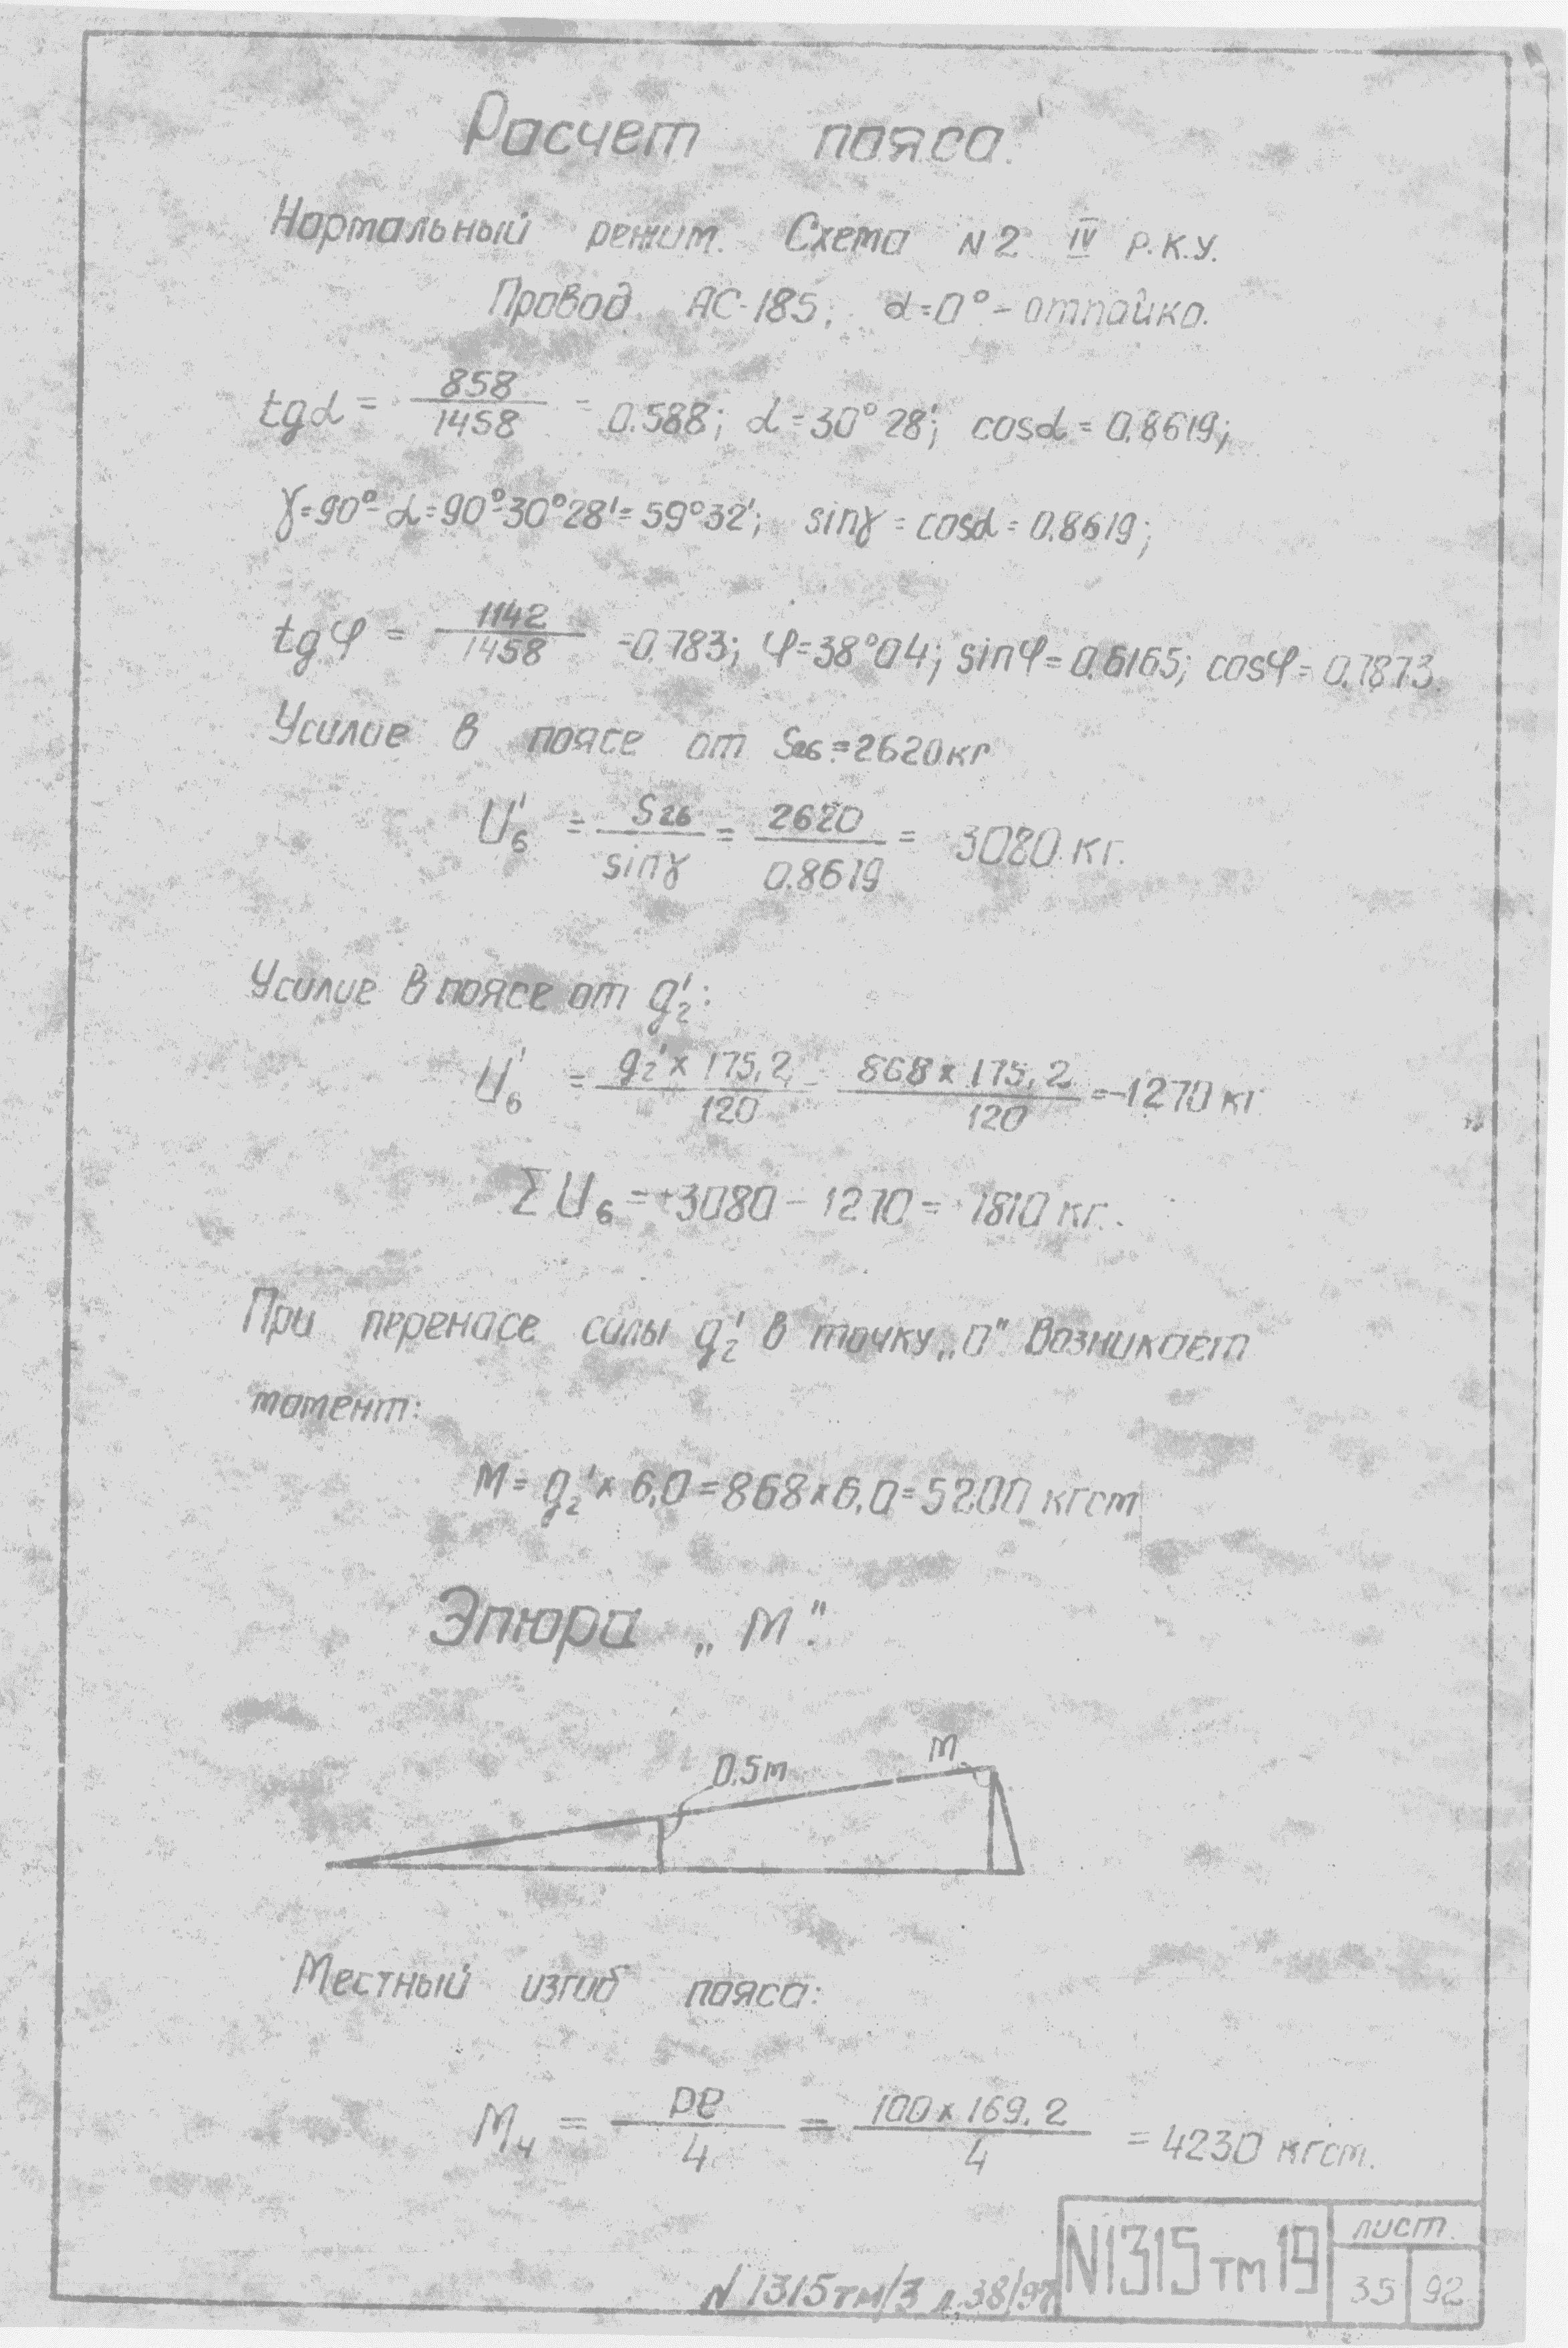 Расчет пояса.
Нормальный режим. Схема N2 IV Р.К.У.
Провод АС-185; α=0° - отпайка.
tgα = 858/1458 = 0.588; α=30°28'; cosα=0.8619;
γ=90°-α=90°-30°28'=59°32'; sinγ=cosα=0.8619;
tgφ = 1142/1458 =0.783; φ=38°04; sinφ=0.6165; cosφ=0.7873.
Усилие в поясе от S2б=2620кг
U'б = S2б/sinγ = 2620/0.8619 = 3080 кг.
Усилие в поясе от g'2:
U'б = g2'x175,2/120 - 868x175,2/120 =-1270 кг
ΣUб=+3080-1270= 1810 кг.
При переносе силы g'2 в точку „О" возникает
момент:
M=g2'x6,0=868x6,0=5200 кгсm
Эпюра „М".
0.5м
М
Местный изгиб пояса:
M4 = Pe/4 = 100x169.2/4 = 4230 кгсm.
N1315тм19
лист.
35 92
N1315тм/3 л.38/97